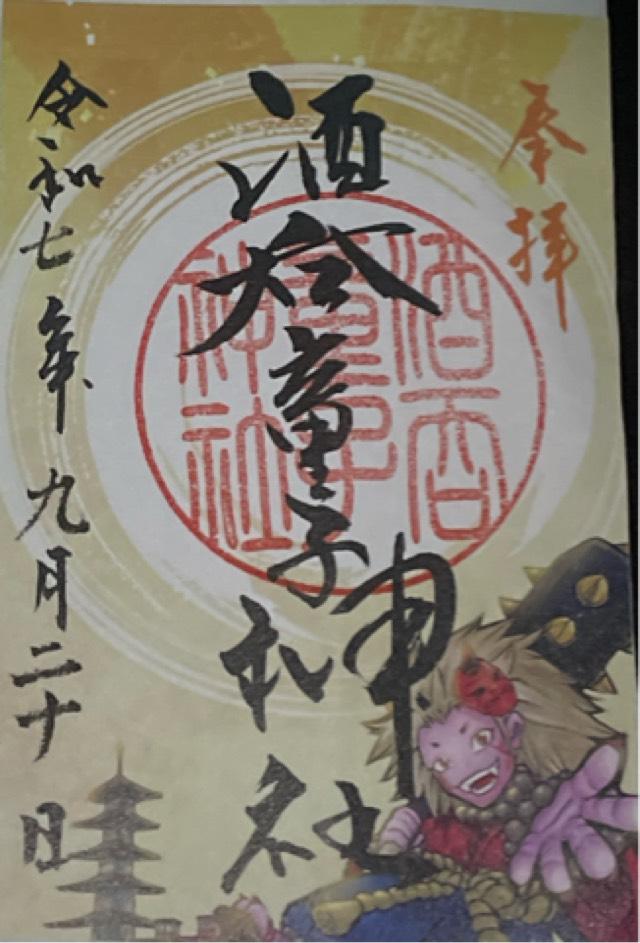 奉拝
酒呑童子神社
酒呑童子神社
令和七年九月二十日